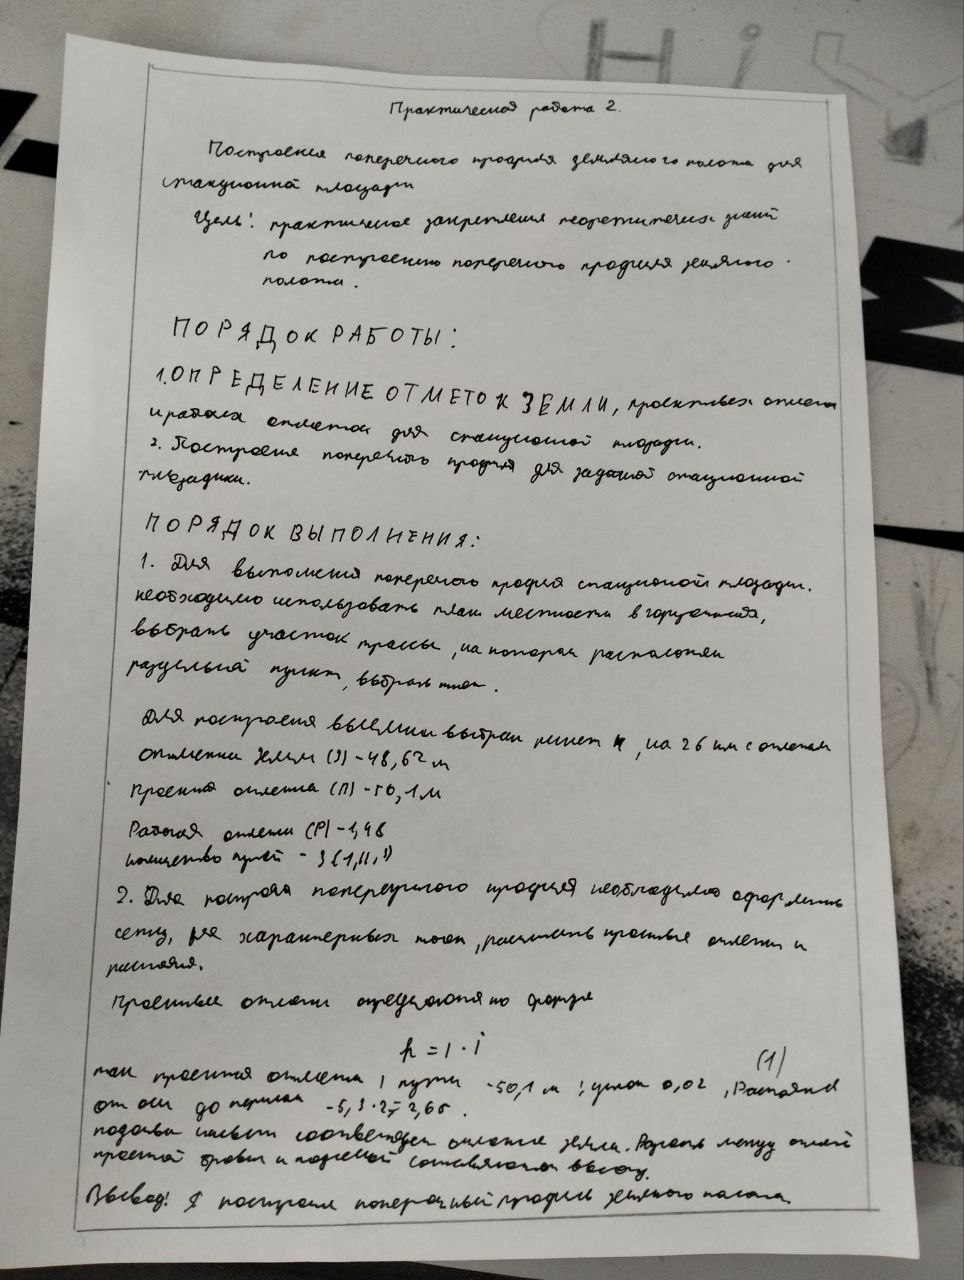 Hi
Практическая работа 2.
Построения поперечного профиля земляного полотна для
станционной площадки
Цель: практическое закрепления теоретических знаний
по построению поперечного профиля земляного
полотна.
ПОРЯДОК РАБОТЫ:
1. ОПРЕДЕЛЕНИЕ ОТМЕТОК ЗЕМЛИ, проектных отметок
и рабочих отметок для станционной площадки.
2. Построение поперечного профиля для заданной станционной
площадки.
ПОРЯДОК ВЫПОЛНЕНИЯ:
1. Для выполнения поперечного профиля станционной площадки.
необходимо использовать план местности в горизонталях,
выбрать участок трассы, на котором расположен
раздельный пункт, выбрать
Для построения выбран на 26 км с
отметки земли (З) - 48,62 м
Проектная отметка (П) - 50,1 м
Рабочая отметка (Р) - 1,48
количество путей - 3 (1,II,3)
2. Для построения поперечного профиля необходимо оформить
сетку, для характерных точек, рассчитать проектные отметки и
расстояния.
Проектные отметки определяются по формуле
h = l · i (1)
так проектная отметка 1 пути - 50,1 м ; уклон 0,02 , Расстояние
от оси до - 5,3
подошва имеет отметке земли. Разность между отметкой
проектной бровки и подошвой высоту.
Вывод: Я построил поперечный профиль земляного полотна